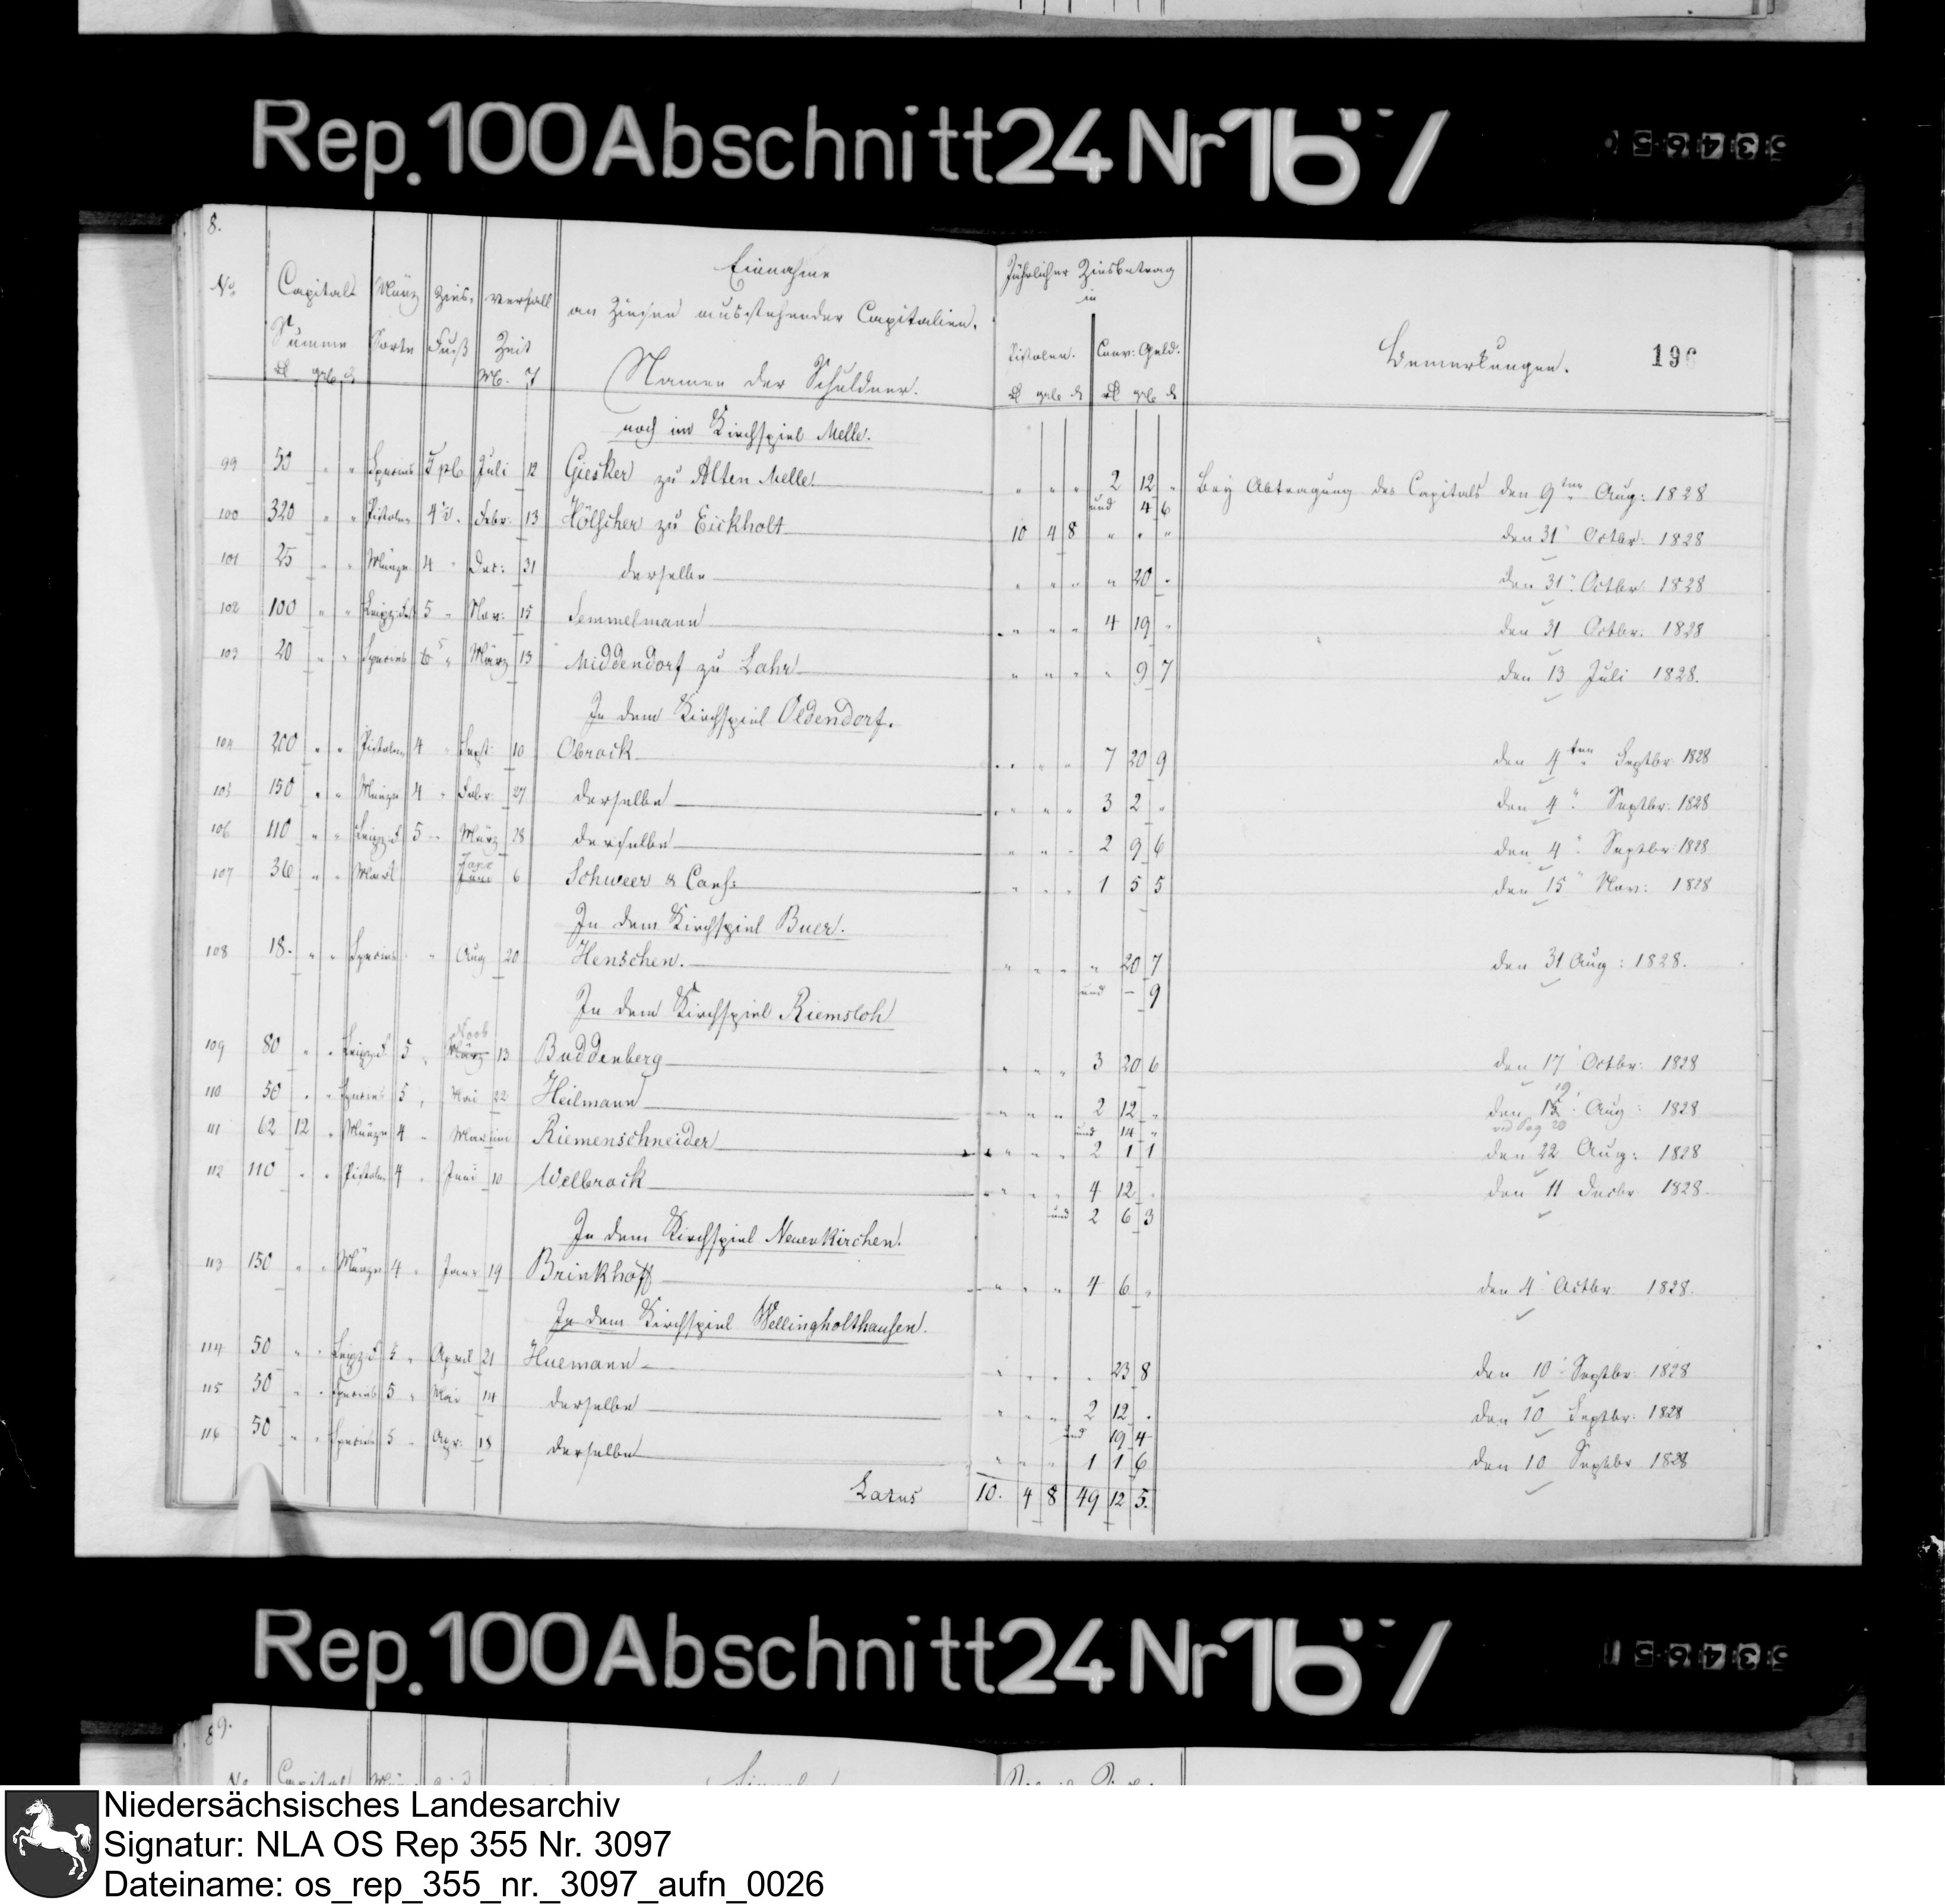 Rep. 100 Abschnitt 24 Nr 167
8.
No. Capital Summe Münz Sorte Zins-Fuß Verfall Zeit M. T
Einnahme
an Zinsen ausstehender Capitalien.
Namen der Schuldner.
Jährlicher Zinsbetrag
in
Pistolen. Conv: Geld.
Bemerkungen. 196
noch im Kirchspiel Melle.
99 50 " " Species 5 Juli 12 Giesker zu Alten Melle " " " 2 12 " Bey Abtragung des Capitals den 9ten Aug: 1828
und 4 6
100 320 " " Pistolen 4 Febr: 13 Hölscher zu Eickholt 10 4 8 " " " den 31 Octbr: 1828
101 25 " " Münze 4 " Dec: 31 derselbe " " " " 20 " den 31 Octbr: 1828
102 100 " " 5 " Nov: 15 Semmelmann " " " 4 19 " den 31 Octbr: 1828
103 20 " " Species 5 " März 13 Middendorf zu Lahr " " " " 9 7 den 13 Juli 1828.
In dem Kirchspiel Oldendorf.
104 200 " " Pistolen 4 " Sept: 10 Obrock " " " 7 20 9 den 4ten Septbr 1828
105 150 " " Münze 4 " Febr: 27 derselbe " " " 3 2 " den 4 " Septbr: 1828
106 110 " " 5 " März 28 derselbe " " " 2 9 6 den 4 " Septbr: 1828
107 36 " " 6 Schweer & Cons: " " " 1 5 5 den 15 " Nov: 1828
In dem Kirchspiel Buer.
108 18 " " Species " " Aug 20 Henschen. " " " " 20 7 den 31 Aug: 1828.
und - 9
In dem Kirchspiel Riemsloh
109 80 " " 5 " März 13 Buddenberg " " " 3 20 6 den 17 Octbr: 1828
110 50 " " Species 5 " Mai 22 Heilmann " " " 2 12 " den Aug: 1828
und 14 "
111 62 12 " Münze 4 " Riemenschneider " " " 2 1 1 den 22 Aug: 1828
112 110 " " Pistolen 4 " Juni 10 Welbrock " " " 4 12 " den 11 Decbr 1828.
und 2 6 3
In dem Kirchspiel Neuenkirchen.
113 150 " " Münze 4 " Janr 19 Brinkhoff " " " 4 6 " den 4 Octbr. 1828.
In dem Kirchspiel Wellingholthausen.
114 50 " " " April 21 Huemann " " " " 23 8 den 10 Septbr 1828
115 50 " " Species 5 " Mai 14 derselbe " " " 2 12 " den 10 Septbr: 1828
und 19 4
116 50 " " Species 5 " Apr: 18 derselbe " " " 1 1 6 den 10 Septbr 1828
Latus 10. 4 8 49 12 5.
Rep. 100 Abschnitt 24 Nr 167
89.
Niedersächsisches Landesarchiv
Signatur: NLA OS Rep 355 Nr. 3097
Dateiname: os_rep_355_nr._3097_aufn_0026